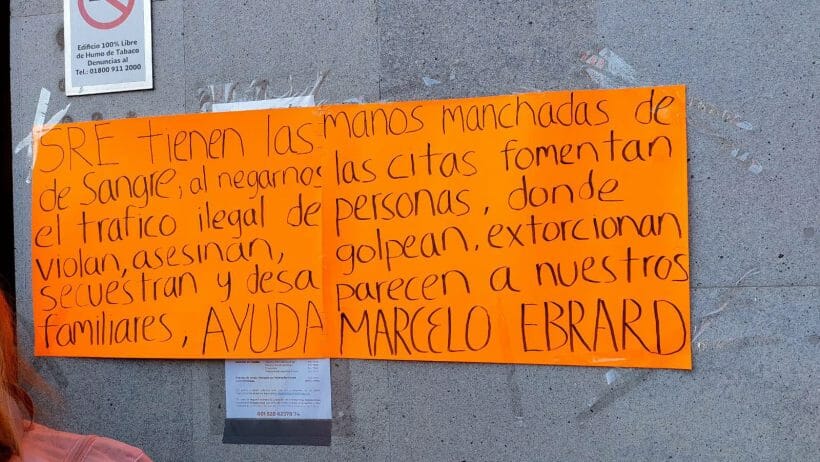 Edificio 100% Libre
de Humo de Tabaco
Denuncias al
Tel.: 01800 911 2000
SRE tienen las manos manchadas de
de sangre, al negarnos las citas fomentan
el trafico ilegal de personas, donde
violan, asesinan, golpean, extorcionan
secuestran y desa parecen a nuestros
familiares, AYUDA MARCELO EBRARD